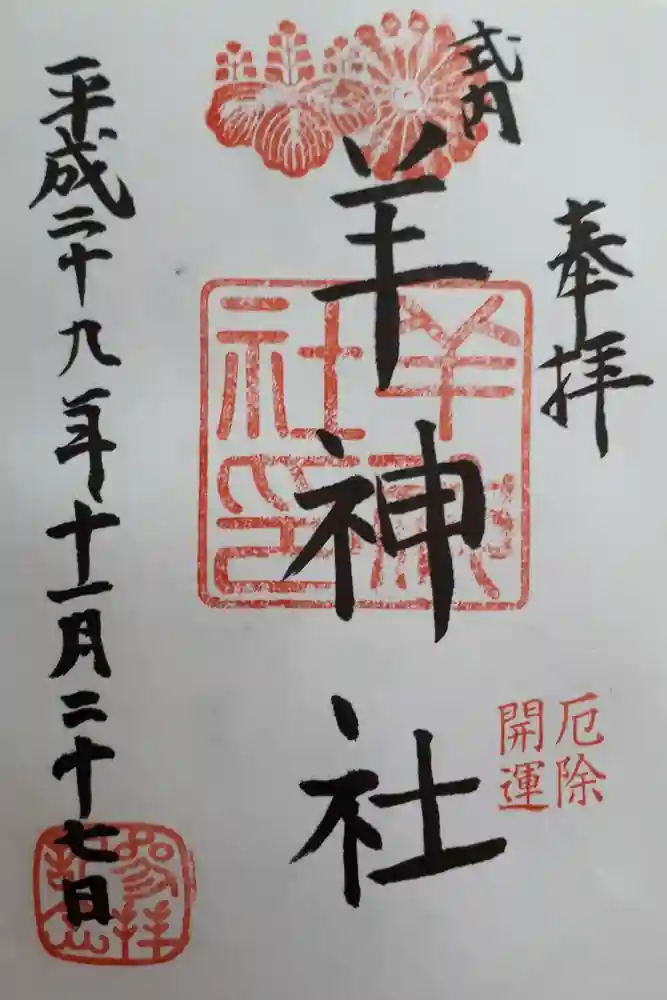 奉拝
式内
羊神社
羊神社印
厄除
開運
平成二十九年十一月二十七日
参拝